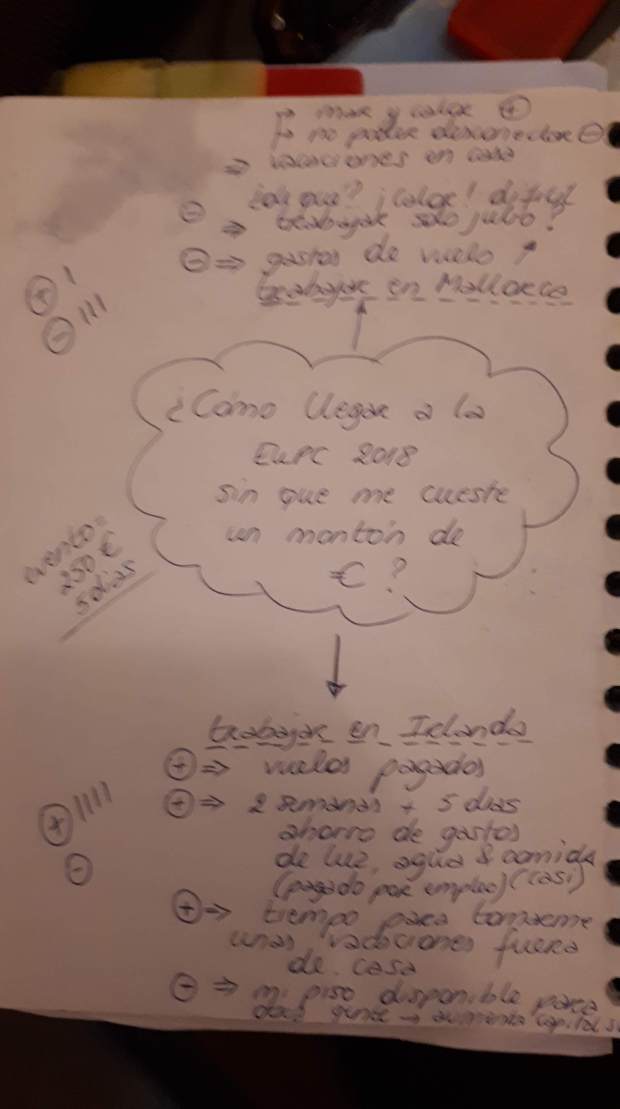 → mar y calor ⊕
→ no poder desconectar ⊖
⇒ vacaciones en casa
¿de que? ¡calor! dificil
⊖ ⇒ trabajar solo julio?
⊖ ⇒ gastos de vuelo
trabajar en Mallorca
⊕ I
⊖ III
¿Cómo llegar a la
EUPC 2018
sin que me cueste
un montón de
€?
evento =
250 €
5 dias
trabajar en Irlanda
⊕ ⇒ vuelos pagados
⊕ ⇒ 2 semanas + 5 dias
ahorro de gastos
de luz, agua & comida
(pagado por empleo) (casi)
⊕ IIII
⊖
⊕ ⇒ tiempo para tomarme
unas vacaciones fuera
de casa
⊖ ⇒ mi piso disponible para
gente → aumenta capital